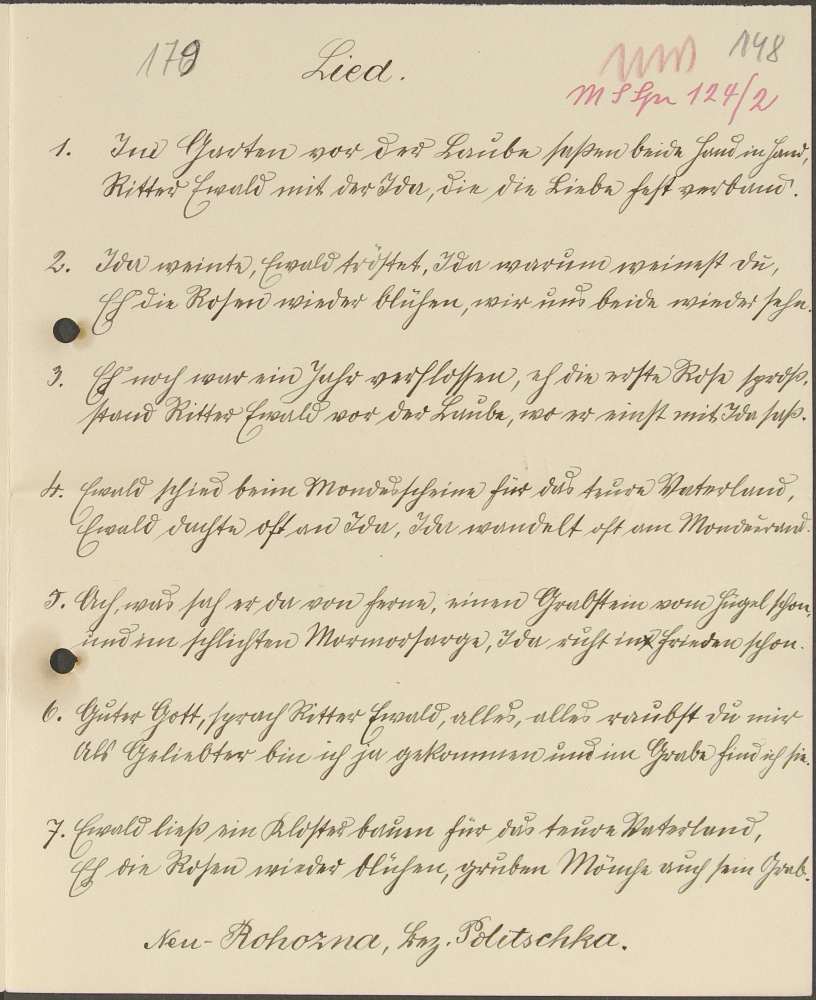 179 Lied. 148
M S Spr 124/2
1. Im Garten vor der Laube saßen beide Hand in Hand,
Ritter Ewald mit der Ida, die die Liebe fest verband.
2. Ida weinte, Ewald tröstet, Ida warum weinest du,
Eh die Rosen wieder blühen, wir uns beide wieder sehn.
3. Eh noch war ein Jahr verflossen, eh die erste Rose sproß,
stand Ritter Ewald vor der Laube, wo er einst mit Ida saß.
4. Ewald schied beim Mondesscheine für das teure Vaterland,
Ewald dachte oft an Ida, Ida wandelt oft am
5. Ach, was sah er da von ferne, einen Grabstein vom Hügel schon,
und im schlichten Marmorsarge, Ida ruht in Frieden schon.
6. Guter Gott, sprach Ritter Ewald, alles, alles raubst du mir
Als Geliebter bin ich ja gekommen und im Grabe find ich sie.
7. Ewald ließ ein Kloster bauen für das teure Vaterland,
Eh die Rosen wieder blühen, gruben Mönche auch sein Grab.
Neu-Rohozna, Bez. Politschka.